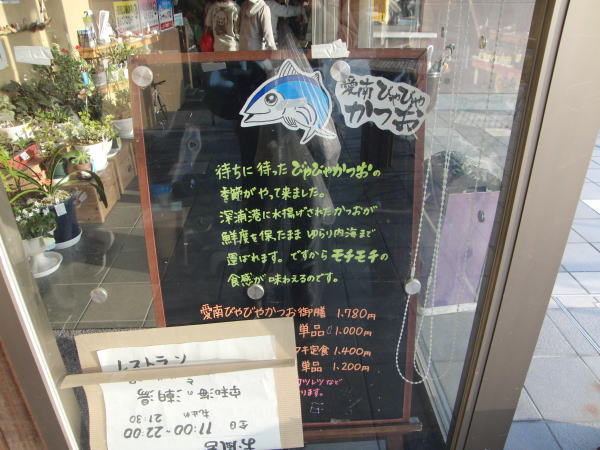 愛南 びゃびゃ
かつお
待ちに待ったびゃびゃかつおの
季節がやって来ました。
深浦港に水揚げされたかつおが
鮮度を保ったまま ゆらり内海まで
運ばれます。ですからモチモチの
食感が味わえるのです。
愛南びゃびゃかつお御膳 1.780円
単品 1.000円
キ定食 1.400円
単品 1.200円
お風呂
全日 11:00~22:00
21:30
レストラン